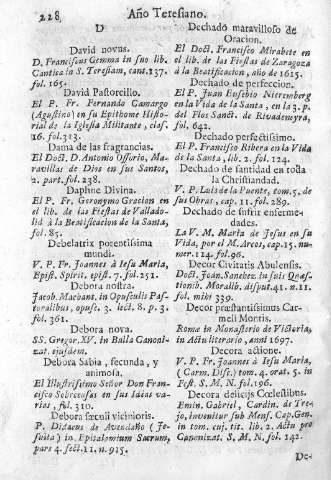 228 Año Teresiano.
D
David novus.
D. Franciscus Gemma in suo lib.
Cantica in S. Teresiam, cant. 137.
fol. 165.
David Pastorcillo.
El P. Fr. Fernando Camargo
(Agustino) en su Epithome Histo-
rial de la Iglesia Militante, clas.
16. fol. 313.
Dama de las fragrancias.
El Doct. D. Antonio Ossorio, Ma-
ravillas de Dios en sus Santos,
2. part. fol. 238.
Daphne Divina.
El P. Fr. Geronymo Gracian en
el lib. de las Fiestas de Vallado-
lid à la Beatificacion de la Santa,
fol. 85.
Debelatrix potentissima
mundi.
V. P. Fr. Joannes à Iesu Maria,
Epist. Spirit. epist. 7. fol. 251.
Debora nostra.
Jacob. Macbant. in Opusculis Pas-
toralibus, opusc. 3. lect. 8. p. 3.
fol. 361.
Debora nova.
SS. Gregor. XV. in Bulla Canoni-
zat. ejusdem.
Debora Sabia, fecunda, y
animosa.
El Illustrissimo Señor Don Fran-
cisco Sobrecasas en sus Ideas va-
rias, fol. 310.
Debora sæculi vicinioris.
P. Didacus de Avendaño (Je-
suita) in Epitalamium Sacrum,
pars 4. sect. 11. n. 915.
Dechado maravilloso de
Oracion.
El Doct. Francisco Mirabete en
el lib. de las Fiestas de Zaragoza
à la Beatificacion, año de 1615.
Dechado de perfeccion.
El P. Juan Eusebio Nieremberg
en la Vida de la Santa, en la 3. p.
del Flos Sanct. de Rivadeneyra,
fol. 642.
Dechado perfectissimo.
El P. Francisco Ribera en la Vida
de la Santa, lib. 2. fol. 124.
Dechado de santidad en toda
la Christiandad.
V. P. Luis de la Puente, tom. 5. de
sus Obras, cap. 11. fol. 289.
Dechado de sufrir enferme-
dades.
La V. M. Maria de Jesus en su
Vida, por el M. Arcos, cap. 15. nu-
mer. 124. fol. 96.
Decor Civitatis Abulensis.
Doct. Joan. Sanchez. in suis Quæs-
tionib. Moralib. disput. 41. n. 11.
fol. mihi 339.
Decor præstantissimus Car-
meli Montis.
Roma in Monasterio de Victoria,
in Actu literario, anni 1697.
Decora actione.
V. P. Fr. Joannes à Iesu Maria,
(Carm. Disc.) tom. 4. orat. 5. in
Fest. S. M. N. fol. 196.
Decora delicijs Cœlestibus.
Emin. Gabriel, Cardin. de Tre-
jo, invenitur sub Mens. Cap. Gen.
in tom. cuj. tit. lib. 2. Actu pro
Canonizat. S. M. N. fol. 142.
De-